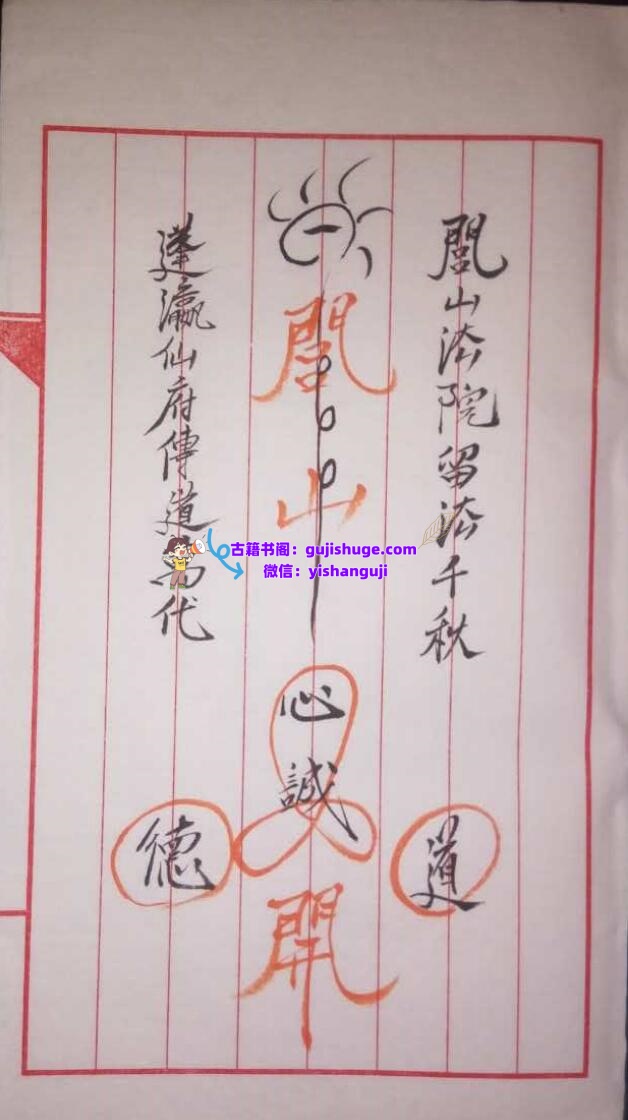 閭山法院留法千秋
閭山
心誠
開
道
德
蓬瀛仙府傳道萬代
古籍书阁：gujishuge.com
微信：yishanguji